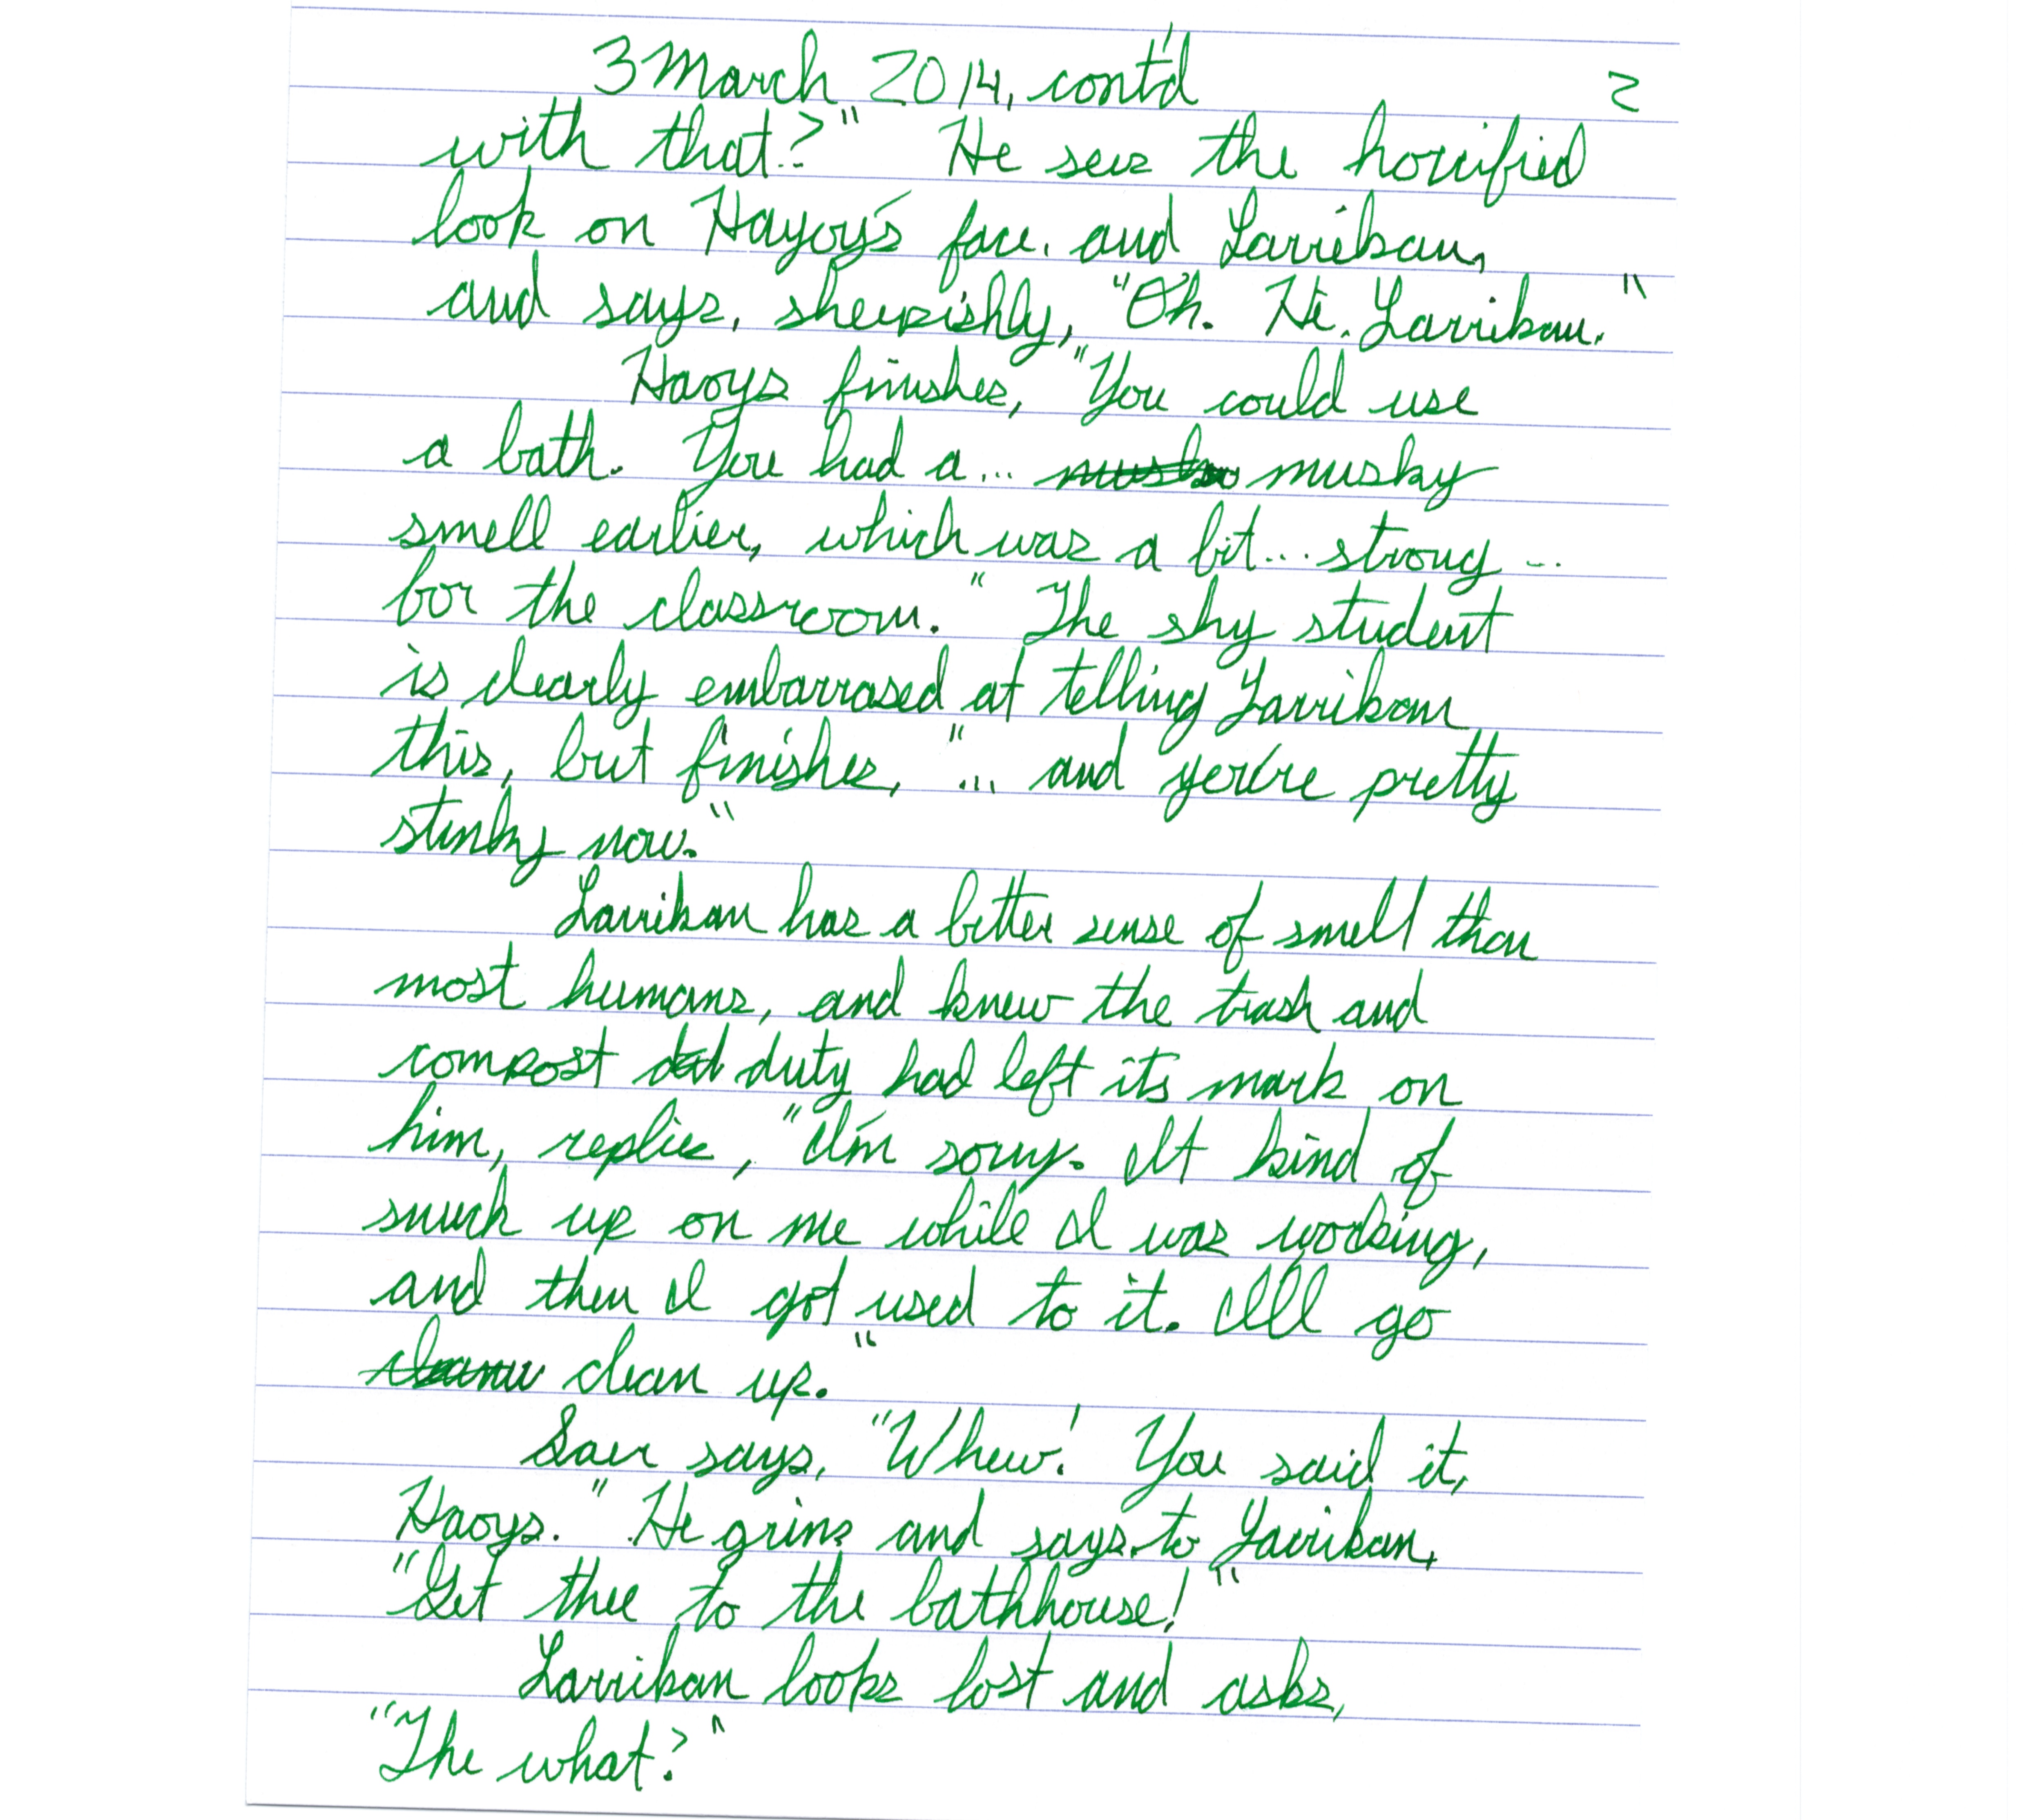 3 March 2014, cont'd 2
with that?" He sees the horrified
look on Hayoy's face, and Larrikan,
and says, sheepishly, "Oh. Hi, Larrikan."
Haoys finishes, "You could use
a bath. You had a... musky
smell earlier, which was a bit... strong...
for the classroom." The shy student
is clearly embarrased at telling Larrikan
this, but finishes, "... and you're pretty
stinky now."
Larrikan has a better sense of smell than
most humans, and knew the trash and
compost duty had left its mark on
him, replies, "I'm sorry. It kind of
snuck up on me while I was working,
and then I got used to it. I'll go
clean up."
Saer says, "Whew! You said it,
Haoys." He grins and says to Larrikan,
"Get thee to the bathhouse!"
Larrikan looks lost and asks,
"The what?"